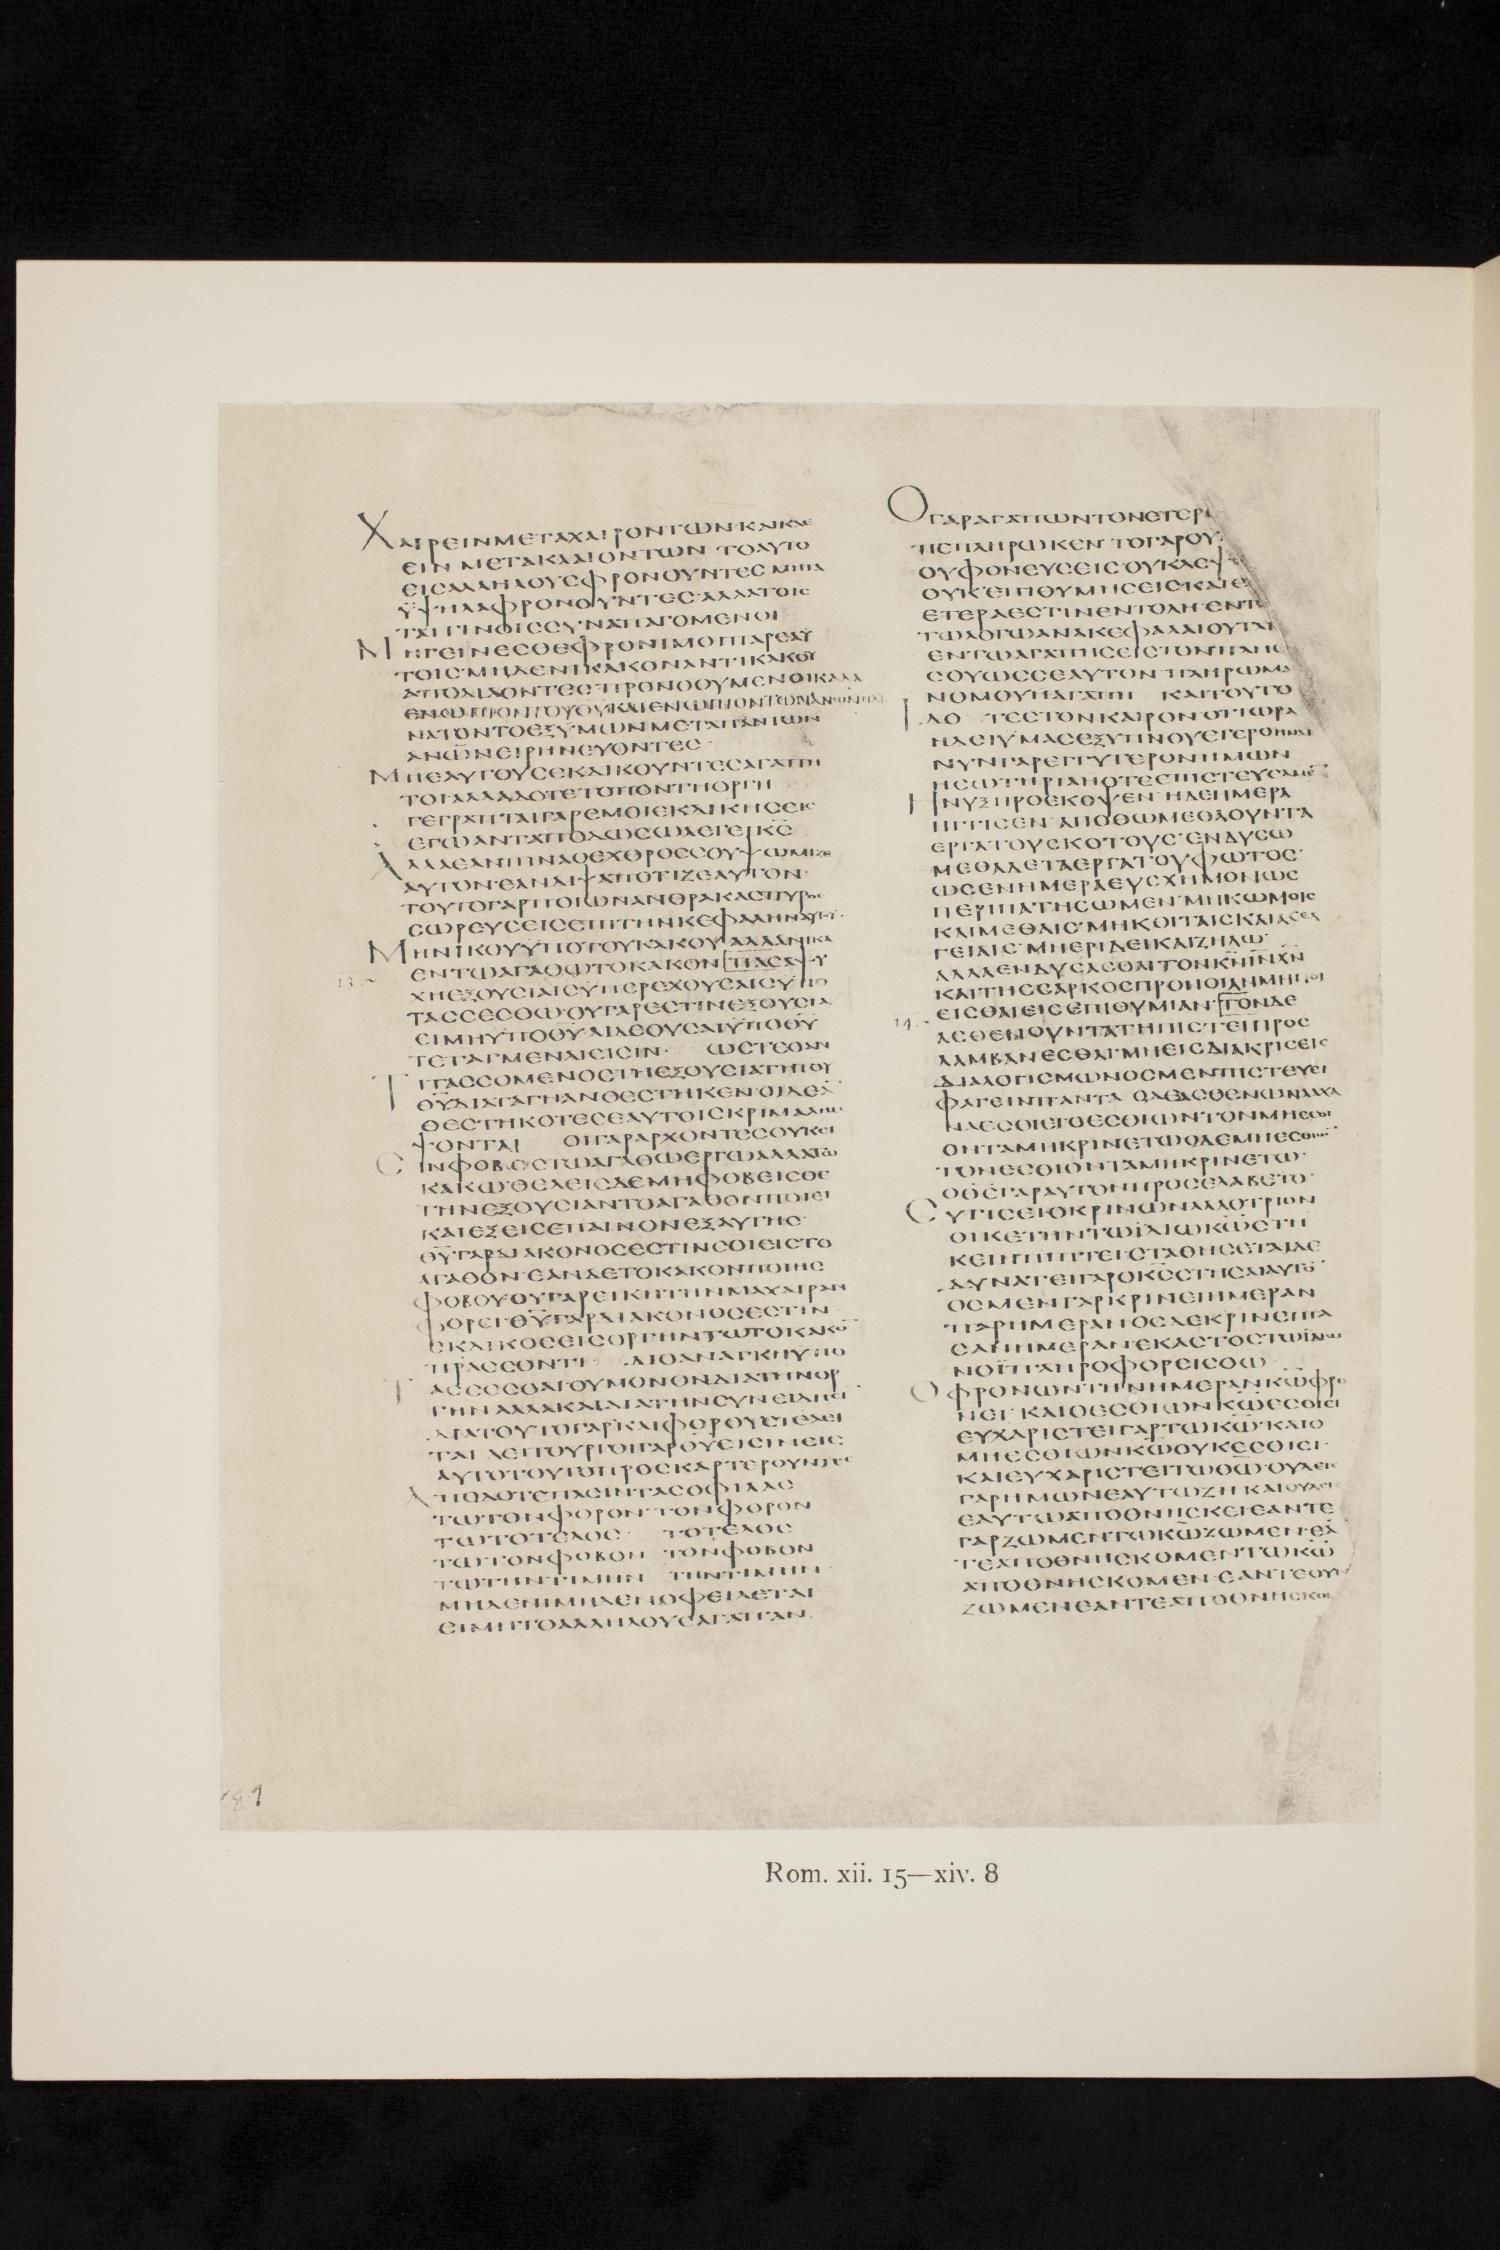 ΧΑΙΡΕΙΝΜΕΤΑΧΑΙΡΟΝΤΩΝ·ΚΑΙΚΛΑΙ
ΕΙΝ ΜΕΤΑΚΛΑΙΟΝΤΩΝ ΤΟΑΥΤΟ
ΕΙΣΑΛΛΗΛΟΥΣΦΡΟΝΟΥΝΤΕΣ ΜΗΤΑ
ΫΨΗΛΑΦΡΟΝΟΥΝΤΕΣ·ΑΛΛΑΤΟΙΣ
ΤΑΠΙΝΟΙΣΣΥΝΑΠΑΓΟΜΕΝΟΙ
ΜΗΓΕΙΝΕΣΘΕΦΡΟΝΙΜΟΙΠΑΡΕΑΥ
ΤΟΙΣ·ΜΗΔΕΝΙΚΑΚΟΝΑΝΤΙΚΑΚΟΥ
ΑΠΟΔΙΔΟΝΤΕΣ·ΠΡΟΝΟΟΥΜΕΝΟΙΚΑΛΑ
ΕΝΩΠΙΟΝΤΟΥΘΥΚΑΙΕΝΩΠΙΟΝΤΩΝΑΝΩΝ
ΝΑΤΟΝΤΟΕΞΥΜΩΝΜΕΤΑΠΑΝΤΩΝ
ΑΝΩΝΕΙΡΗΝΕΥΟΝΤΕΣ
ΜΗΕΑΥΤΟΥΣΕΚΔΙΚΟΥΝΤΕΣΑΓΑΠΗ
ΤΟΙΑΛΛΑΔΟΤΕΤΟΠΟΝΤΗΟΡΓΗ
ΓΕΓΡΑΠΤΑΙΓΑΡΕΜΟΙΕΚΔΙΚΗΣΕΙΣ
ΕΓΩΑΝΤΑΠΟΔΩΣΩΛΕΓΕΙΚΣ
ΑΛΛΑΕΑΝΠΙΝΑΟΕΧΘΡΟΣΣΟΥΨΩΜΙΖΕ
ΑΥΤΟΝ·ΕΑΝΔΙΨΑΠΟΤΙΖΕΑΥΤΟΝ·
ΤΟΥΤΟΓΑΡΠΟΙΩΝΑΝΘΡΑΚΑΣΠΥΡΟΣ
ΣΩΡΕΥΣΕΙΣΕΠΙΤΗΝΚΕΦΑΛΗΝΑΥΤΟΥ·
ΜΗΝΙΚΟΥΫΠΟΤΟΥΚΑΚΟΥΑΛΛΑΝΙΚΑ
ΕΝΤΩΑΓΑΘΩΤΟΚΑΚΟΝ ΠΑΣΑΨΥ
ΧΗΕΞΟΥΣΙΑΙΣΫΠΕΡΕΧΟΥΣΑΙΣΫΠΟ
ΤΑΣΣΕΣΘΩ·ΟΥΓΑΡΕΣΤΙΝΕΞΟΥΣΙΑ
ΕΙΜΗΫΠΟΘΥ·ΑΙΔΕΟΥΣΑΙΫΠΟΘΥ
ΤΕΤΑΓΜΕΝΑΙΕΙΣΙΝ· ΩΣΤΕΟΑΝ
ΤΙΤΑΣΣΟΜΕΝΟΣΤΗΕΞΟΥΣΙΑΤΗΤΟΥ
ΘΥΔΙΑΤΑΓΗΑΝΘΕΣΤΗΚΕΝ·ΟΙΔΕΑΝ
ΘΕΣΤΗΚΟΤΕΣΕΑΥΤΟΙΣΚΡΙΜΑΛΗΜ
ΨΟΝΤΑΙ ΟΙΓΑΡΑΡΧΟΝΤΕΣΟΥΚΕΙ
ΣΙΝΦΟΒΟΣΤΩΑΓΑΘΩΕΡΓΩΑΛΛΑΤΩ
ΚΑΚΩ·ΘΕΛΕΙΣΔΕΜΗΦΟΒΕΙΣΘΕ
ΤΗΝΕΞΟΥΣΙΑΝΤΟΑΓΑΘΟΝΠΟΙΕΙ
ΚΑΙΕΞΕΙΣΕΠΑΙΝΟΝΕΞΑΥΤΗΣ·
ΘΥΓΑΡΔΙΑΚΟΝΟΣΕΣΤΙΝΣΟΙΕΙΣΤΟ
ΑΓΑΘΟΝ·ΕΑΝΔΕΤΟΚΑΚΟΝΠΟΙΗΣ
ΦΟΒΟΥ·ΟΥΓΑΡΕΙΚΗΤΗΝΜΑΧΑΙΡΑΝ
ΦΟΡΕΙ·ΘΥΓΑΡΔΙΑΚΟΝΟΣΕΣΤΙΝ
ΕΚΔΙΚΟΣΕΙΣΟΡΓΗΝΤΩΤΟΚΑΚΟΝ
ΠΡΑΣΣΟΝΤΙ ΔΙΟΑΝΑΓΚΗΥΠΟ
ΤΑΣΣΕΣΘΑΙΟΥΜΟΝΟΝΔΙΑΤΗΝΟΡ
ΓΗΝΑΛΛΑΚΑΙΔΙΑΤΗΝΣΥΝΕΙΔΗΣΙ
ΔΙΑΤΟΥΤΟΓΑΡΚΑΙΦΟΡΟΥΣΤΕΛΕΙ
ΤΑΙ ΛΕΙΤΟΥΡΓΟΙΓΑΡΘΥΕΙΣΙΝΕΙΣ
ΑΥΤΟΤΟΥΤΟΠΡΟΣΚΑΡΤΕΡΟΥΝΤΕΣ
ΑΠΟΔΟΤΕΠΑΣΙΝΤΑΣΟΦΙΛΑΣ
ΤΩΤΟΝΦΟΡΟΝ·ΤΟΝΦΟΡΟΝ
ΤΩΤΟΤΕΛΟΣ· ΤΟΤΕΛΟΣ
ΤΩΤΟΝΦΟΒΟΝ ΤΟΝΦΟΒΟΝ
ΤΩΤΗΝΤΙΜΗΝ ΤΗΝΤΙΜΗΝ
ΜΗΔΕΝΙΜΗΔΕΝΟΦΕΙΛΕΤΑΙ
ΕΙΜΗΤΟΑΛΛΗΛΟΥΣΑΓΑΠΑΝ
ΟΓΑΡΑΓΑΠΩΝΤΟΝΕΤΕΡ
ΠΕΠΛΗΡΩΚΕΝ ΤΟΓΑΡΟΥ
ΟΥΦΟΝΕΥΣΕΙΣ·ΟΥΚΛΕΨ
ΟΥΚΕΠΙΘΥΜΗΣΕΙΣ·ΚΑΙΕ
ΕΤΕΡΑΕΣΤΙΝΕΝΤΟΛΗ·ΕΝΤ
ΤΩΛΟΓΩΑΝΑΚΕΦΑΛΑΙΟΥΤΑΙ
ΕΝΤΩΑΓΑΠΗΣΕΙΣΤΟΝΠΛΗΣ
ΣΟΥΩΣΣΕΑΥΤΟΝ ΠΛΗΡΩΜΑ
ΝΟΜΟΥΗΑΓΑΠΗ ΚΑΙΤΟΥΤΟ
ΙΔΟ ΤΕΣΤΟΝΚΑΙΡΟΝ·ΟΤΙΩΡΑ
ΗΔΕΙΫΜΑΣΕΞΥΠΝΟΥΕΓΕΡΘΗΝΑΙ
ΝΥΝΓΑΡΕΓΓΥΤΕΡΟΝΗΜΩΝ
ΗΣΩΤΗΡΙΑΗΟΤΕΕΠΙΣΤΕΥΣΑΜΕ
ΗΝΥΞΠΡΟΕΚΟΨΕΝ·ΗΔΕΗΜΕΡΑ
ΗΓΓΙΣΕΝ·ΑΠΟΘΩΜΕΘΑΟΥΝΤΑ
ΕΡΓΑΤΟΥΣΚΟΤΟΥΣ·ΕΝΔΥΣΩ
ΜΕΘΑΔΕΤΑΕΡΓΑΤΟΥΦΩΤΟΣ·
ΩΣΕΝΗΜΕΡΑΕΥΣΧΗΜΟΝΩΣ
ΠΕΡΙΠΑΤΗΣΩΜΕΝ·ΜΗΚΩΜΟΙΣ
ΚΑΙΜΕΘΑΙΣ·ΜΗΚΟΙΤΑΙΣΚΑΙΑΣΕΛ
ΓΕΙΑΙΣ·ΜΗΕΡΙΔΕΙΚΑΙΖΗΛΩ·
ΑΛΛΑΕΝΔΥΣΑΣΘΑΙΤΟΝΚΝΙΝΧΝ
ΚΑΙΤΗΣΣΑΡΚΟΣΠΡΟΝΟΙΑΝΜΗΠΟΙ
ΕΙΣΘΑΙΕΙΣΕΠΙΘΥΜΙΑΝ· ΤΟΝΔΕ
ΑΣΘΕΝΟΥΝΤΑΤΗΠΙΣΤΕΙΠΡΟΣ
ΛΑΜΒΑΝΕΣΘΑΙ·ΜΗΕΙΣΔΙΑΚΡΙΣΕΙΣ
ΔΙΑΛΟΓΙΣΜΩΝΟΣΜΕΝΠΙΣΤΕΥΕΙ
ΦΑΓΕΙΝΠΑΝΤΑ ΟΔΕΑΣΘΕΝΩΝΛΑΧΑ
ΝΑΕΣΘΙΕΤΟΕΣΘΙΩΝΤΟΝΜΗΕΣΘΙ
ΟΝΤΑΜΗΚΡΙΝΕΤΩΟΔΕΜΗΕΣΘΙΩΝ
ΤΟΝΕΣΘΙΟΝΤΑΜΗΚΡΙΝΕΤΩ·
ΟΘΣΓΑΡΑΥΤΟΝΠΡΟΣΕΛΑΒΕΤΟ·
ΣΥΤΙΣΕΙΟΚΡΙΝΩΝΑΛΛΟΤΡΙΟΝ
ΟΙΚΕΤΗΝΤΩΪΔΙΩΚΩΣΤΗ
ΚΕΙΗΠΙΠΤΕΙ·ΣΤΑΘΗΣΕΤΑΙΔΕ
ΔΥΝΑΤΕΙΓΑΡΟΚΣΣΤΗΣΑΙΑΥΤΟ
ΟΣΜΕΝΓΑΡΚΡΙΝΕΙΗΜΕΡΑΝ
ΠΑΡΗΜΕΡΑΝΟΣΔΕΚΡΙΝΕΙΠΑ
ΣΑΝΗΜΕΡΑΝ·ΕΚΑΣΤΟΣΤΩΪΔΙΩ
ΝΟΪΠΛΗΡΟΦΟΡΕΙΣΘΩ
ΟΦΡΟΝΩΝΤΗΝΗΜΕΡΑΝΚΩΦΡΟ
ΝΕΙ· ΚΑΙΟΕΣΘΙΩΝΚΩΕΣΘΙΕΙ
ΕΥΧΑΡΙΣΤΕΙΓΑΡΤΩΚΩ·ΚΑΙΟ
ΜΗΕΣΘΙΩΝΚΩΟΥΚΕΣΘΙΕΙ·
ΚΑΙΕΥΧΑΡΙΣΤΕΙΤΩΘΩ·ΟΥΔΕΙΣ
ΓΑΡΗΜΩΝΕΑΥΤΩΖΗ ΚΑΙΟΥΔΕΙΣ
ΕΑΥΤΩΑΠΟΘΝΗΣΚΕΙΕΑΝΤΕ
ΓΑΡΖΩΜΕΝΤΩΚΩΖΩΜΕΝ·ΕΑ
ΤΕΑΠΟΘΝΗΣΚΟΜΕΝΤΩΚΩ
ΑΠΟΘΝΗΣΚΟΜΕΝ·ΕΑΝΤΕΟΥΝ
ΖΩΜΕΝΕΑΝΤΕΑΠΟΘΝΗΣΚΟ
Rom. xii. 15—xiv. 8